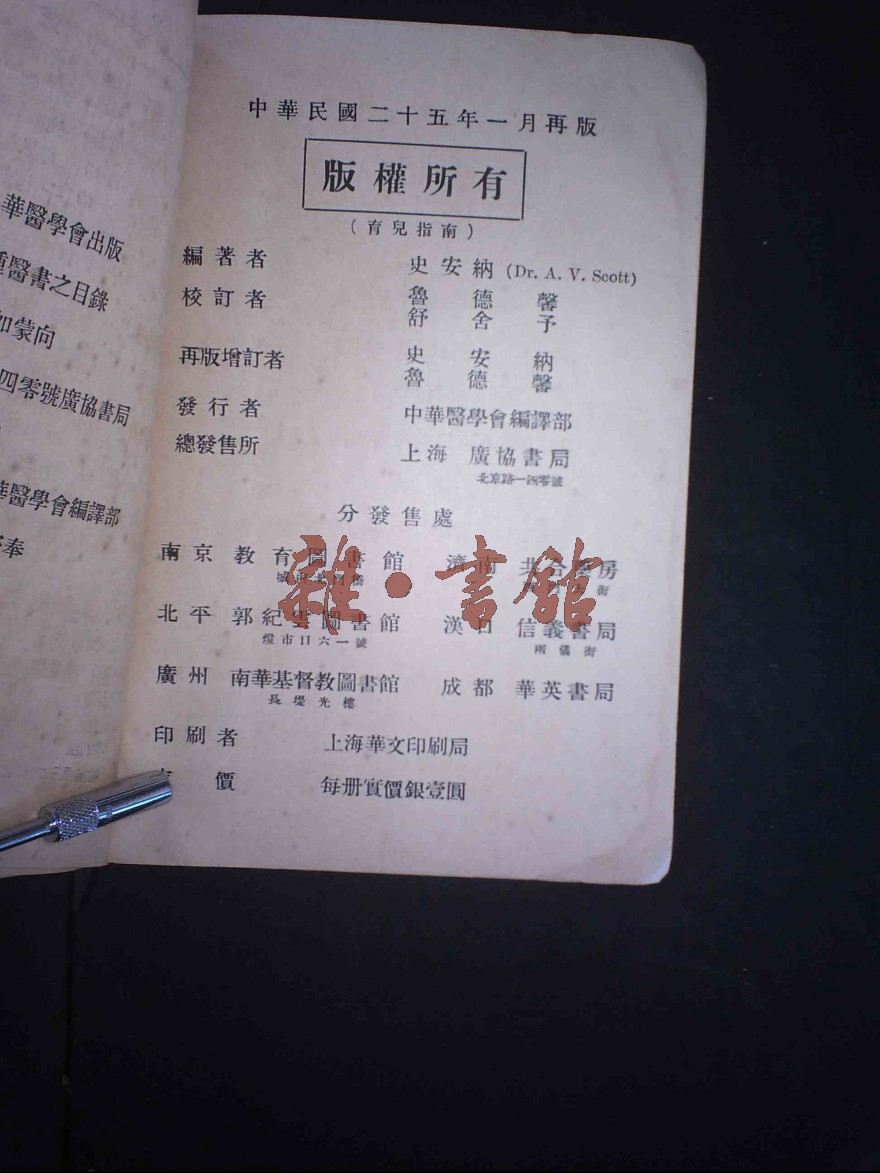 中華民國二十五年一月再版
版權所有
(育兒指南)
編著者 史安納 (Dr. A. V. Scott)
校訂者 魯德馨
舒舍予
再版增訂者 史安納
魯德馨
發行者 中華醫學會編譯部
總發售所 上海 廣協書局
北京路一四零號
分發售處
南京 教育圖書館 濟南 共合藥房
北平 郭紀雲圖書館 漢口 信義書局
燈市口六一號 兩儀街
廣州 南華基督教圖書館 成都 華英書局
長堤光樓
印刷者 上海華文印刷局
價 每册實價銀壹圓
雜·書館
華醫學會出版
醫書之目錄
如蒙向
四零號廣協書局
華醫學會編譯部
奉